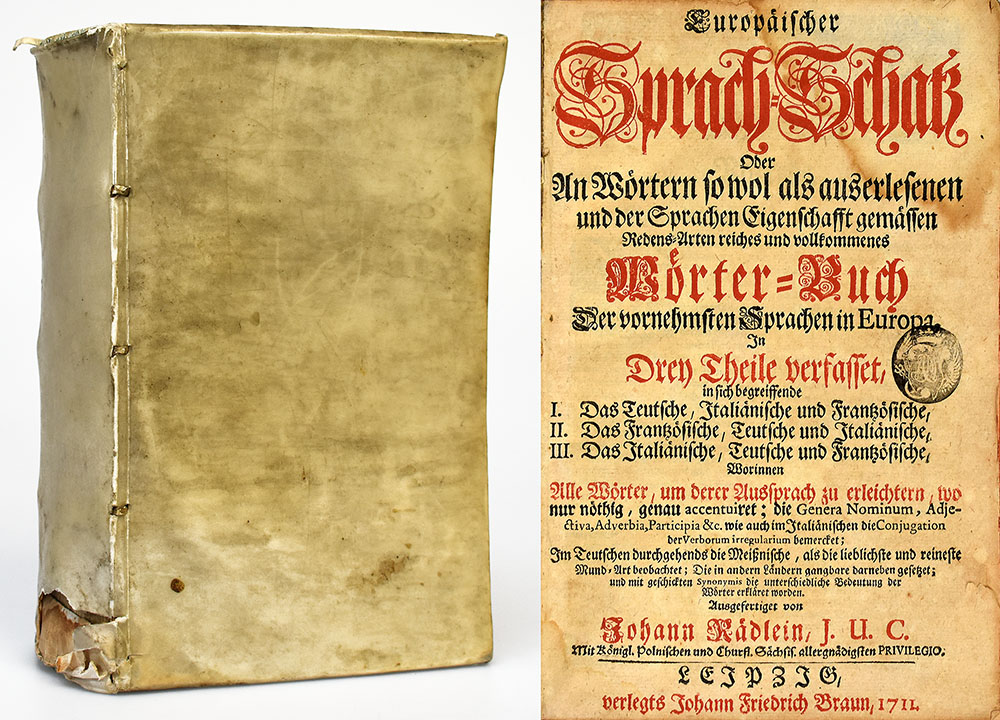 Europäischer
Sprach-Schatz
Oder
An Wörtern so wol als auserlesenen
und der Sprachen Eigenschafft gemässen
Redens-Arten reiches und vollkommenes
Wörter-Buch
Der vornehmsten Sprachen in Europa,
In
Drey Theile verfasset,
in sich begreiffende
I. Das Teutsche, Italiänische und Frantzösische,
II. Das Frantzösische, Teutsche und Italiänische,
III. Das Italiänische, Teutsche und Frantzösische,
Worinnen
Alle Wörter, um derer Aussprach zu erleichtern, wo
nur nöthig, genau accentuiret; die Genera Nominum, Adje-
ctiva, Adverbia, Participia &c. wie auch im Italiänischen die Conjugation
der Verborum irregularium bemercket;
Im Teutschen durchgehends die Meißnische, als die lieblichste und reineste
Mund-Art beobachtet; Die in andern Ländern gangbare darneben gesetzet;
und mit geschickten Synonymis die unterschiedliche Bedeutung der
Wörter erkläret worden.
Ausgefertiget von
Johann Rädlein, J. U. C.
Mit Königl. Polnischen und Churfl. Sächsis. allergnädigsten PRIVILEGIO.
LEIPZIG,
verlegts Johann Friedrich Braun, 1711.